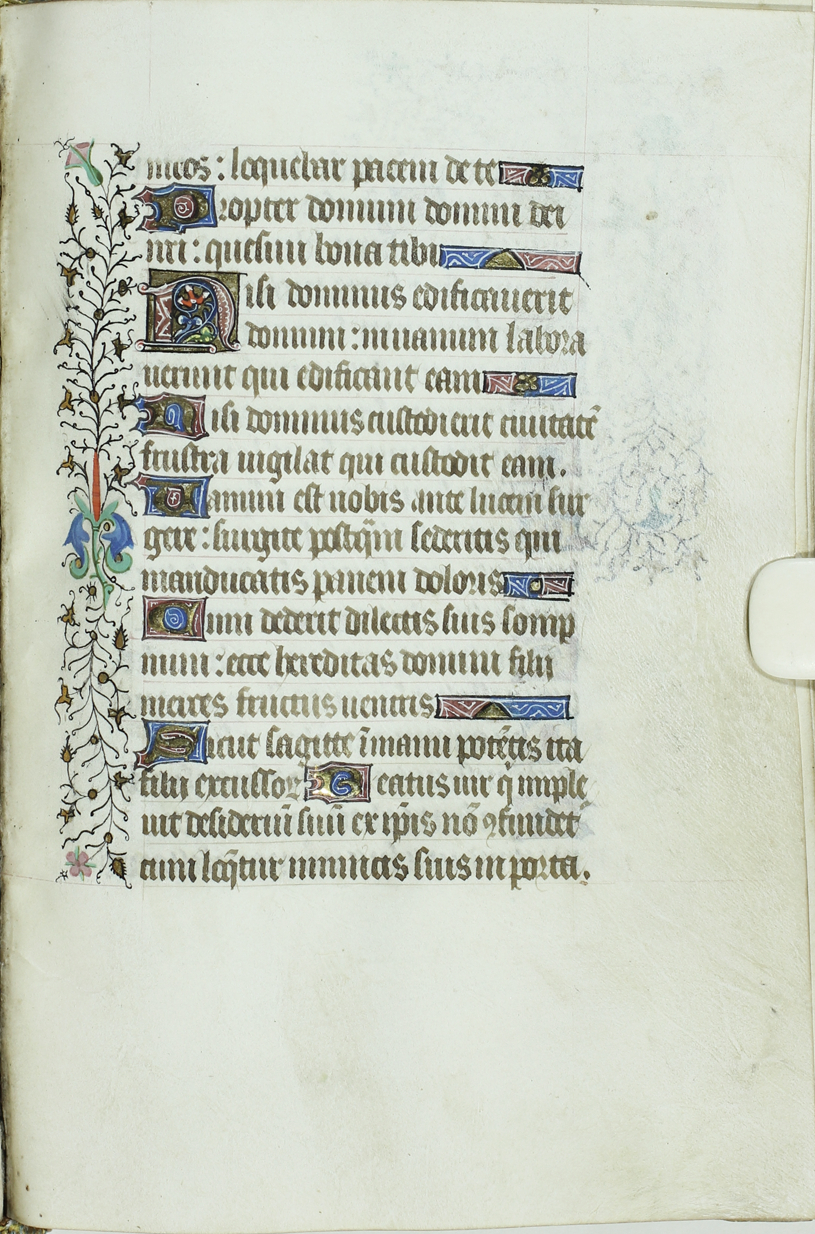 meos : loquebar pacem de te
Propter domum domini dei
nr̄i : quesiui bona tibi
Nisi dominus edificauerit
domum : in uanum labora
uerunt qui edificant eam
Nisi dominus custodierit ciuitatē
frustra uigilat qui custodit eam .
Uanum est uobis ante lucem sur
gere : surgite postq̄m sederitis qui
manducatis panem doloris
Cum dederit dilectis suis somp
num : ecce hereditas domini filii
merces fructus uentris
Sicut sagitte ī manu potētis ita
filii excussoꝝ Beatus uir q̄ imple
uit desideriū suū ex ip̄is nō ꝯfundet᷑
cum loq̄tur inimicis suis in porta .